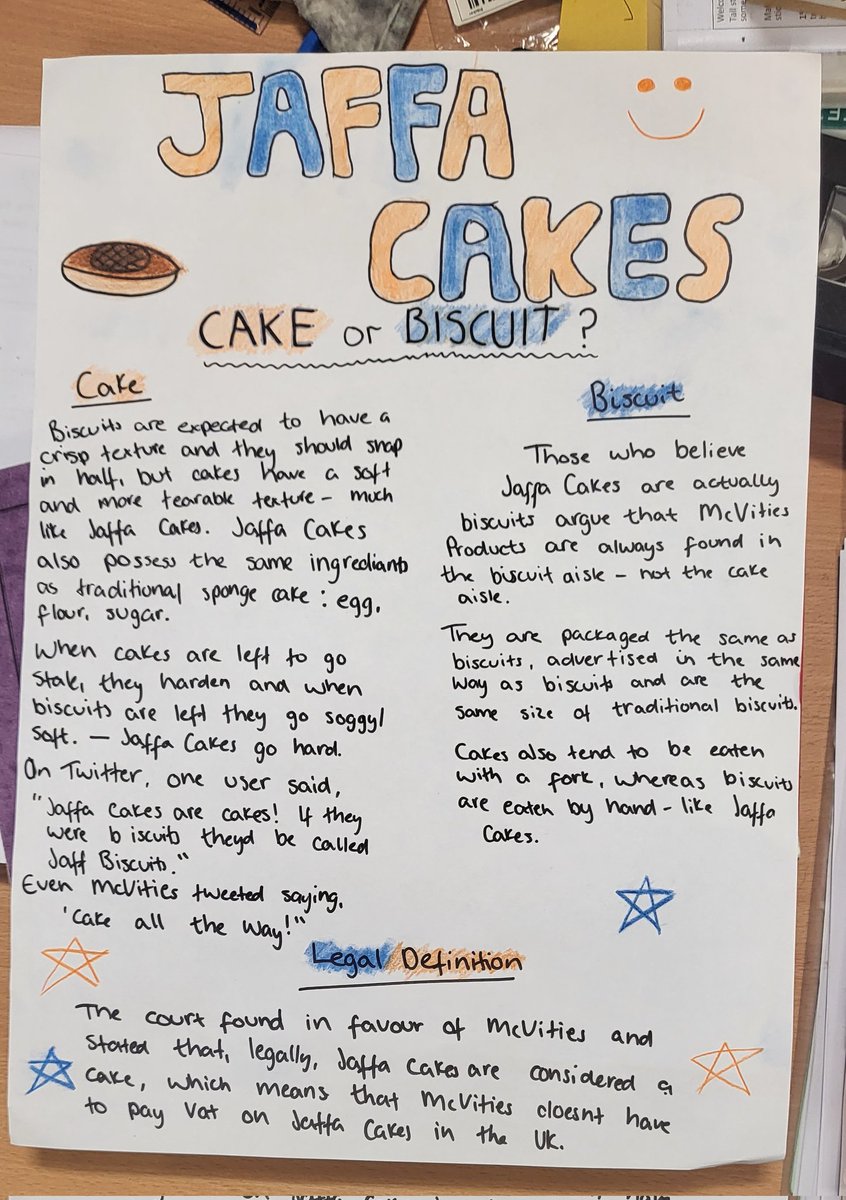 JAFFA
CAKES
CAKE or BISCUIT?
Cake
Biscuits are expected to have a
crisp texture and they should snap
in half, but cakes have a soft
and more tearable texture - much
like Jaffa Cakes. Jaffa Cakes
also possess the same ingredients
as traditional sponge cake : egg,
flour, sugar.
When cakes are left to go
stale, they harden and when
biscuits are left they go soggy/
soft. — Jaffa Cakes go hard.
On Twitter, one user said,
"Jaffa Cakes are cakes! If they
were biscuits theyd be called
Jaff Biscuits."
Even McVities tweeted saying,
'Cake all the way!"
Biscuit
Those who believe
Jaffa Cakes are actually
biscuits argue that McVities
Products are always found in
the biscuit aisle - not the cake
aisle.
They are packaged the same as
biscuits, advertised in the same
way as biscuits and are the
same size of traditional biscuits.
Cakes also tend to be eaten
with a fork, whereas biscuits
are eaten by hand - like Jaffa
Cakes.
Legal Definition
The court found in favour of McVities and
stated that, legally, Jaffa Cakes are considered a
cake, which means that McVities doesnt have
to pay Vat on Jaffa Cakes in the UK.